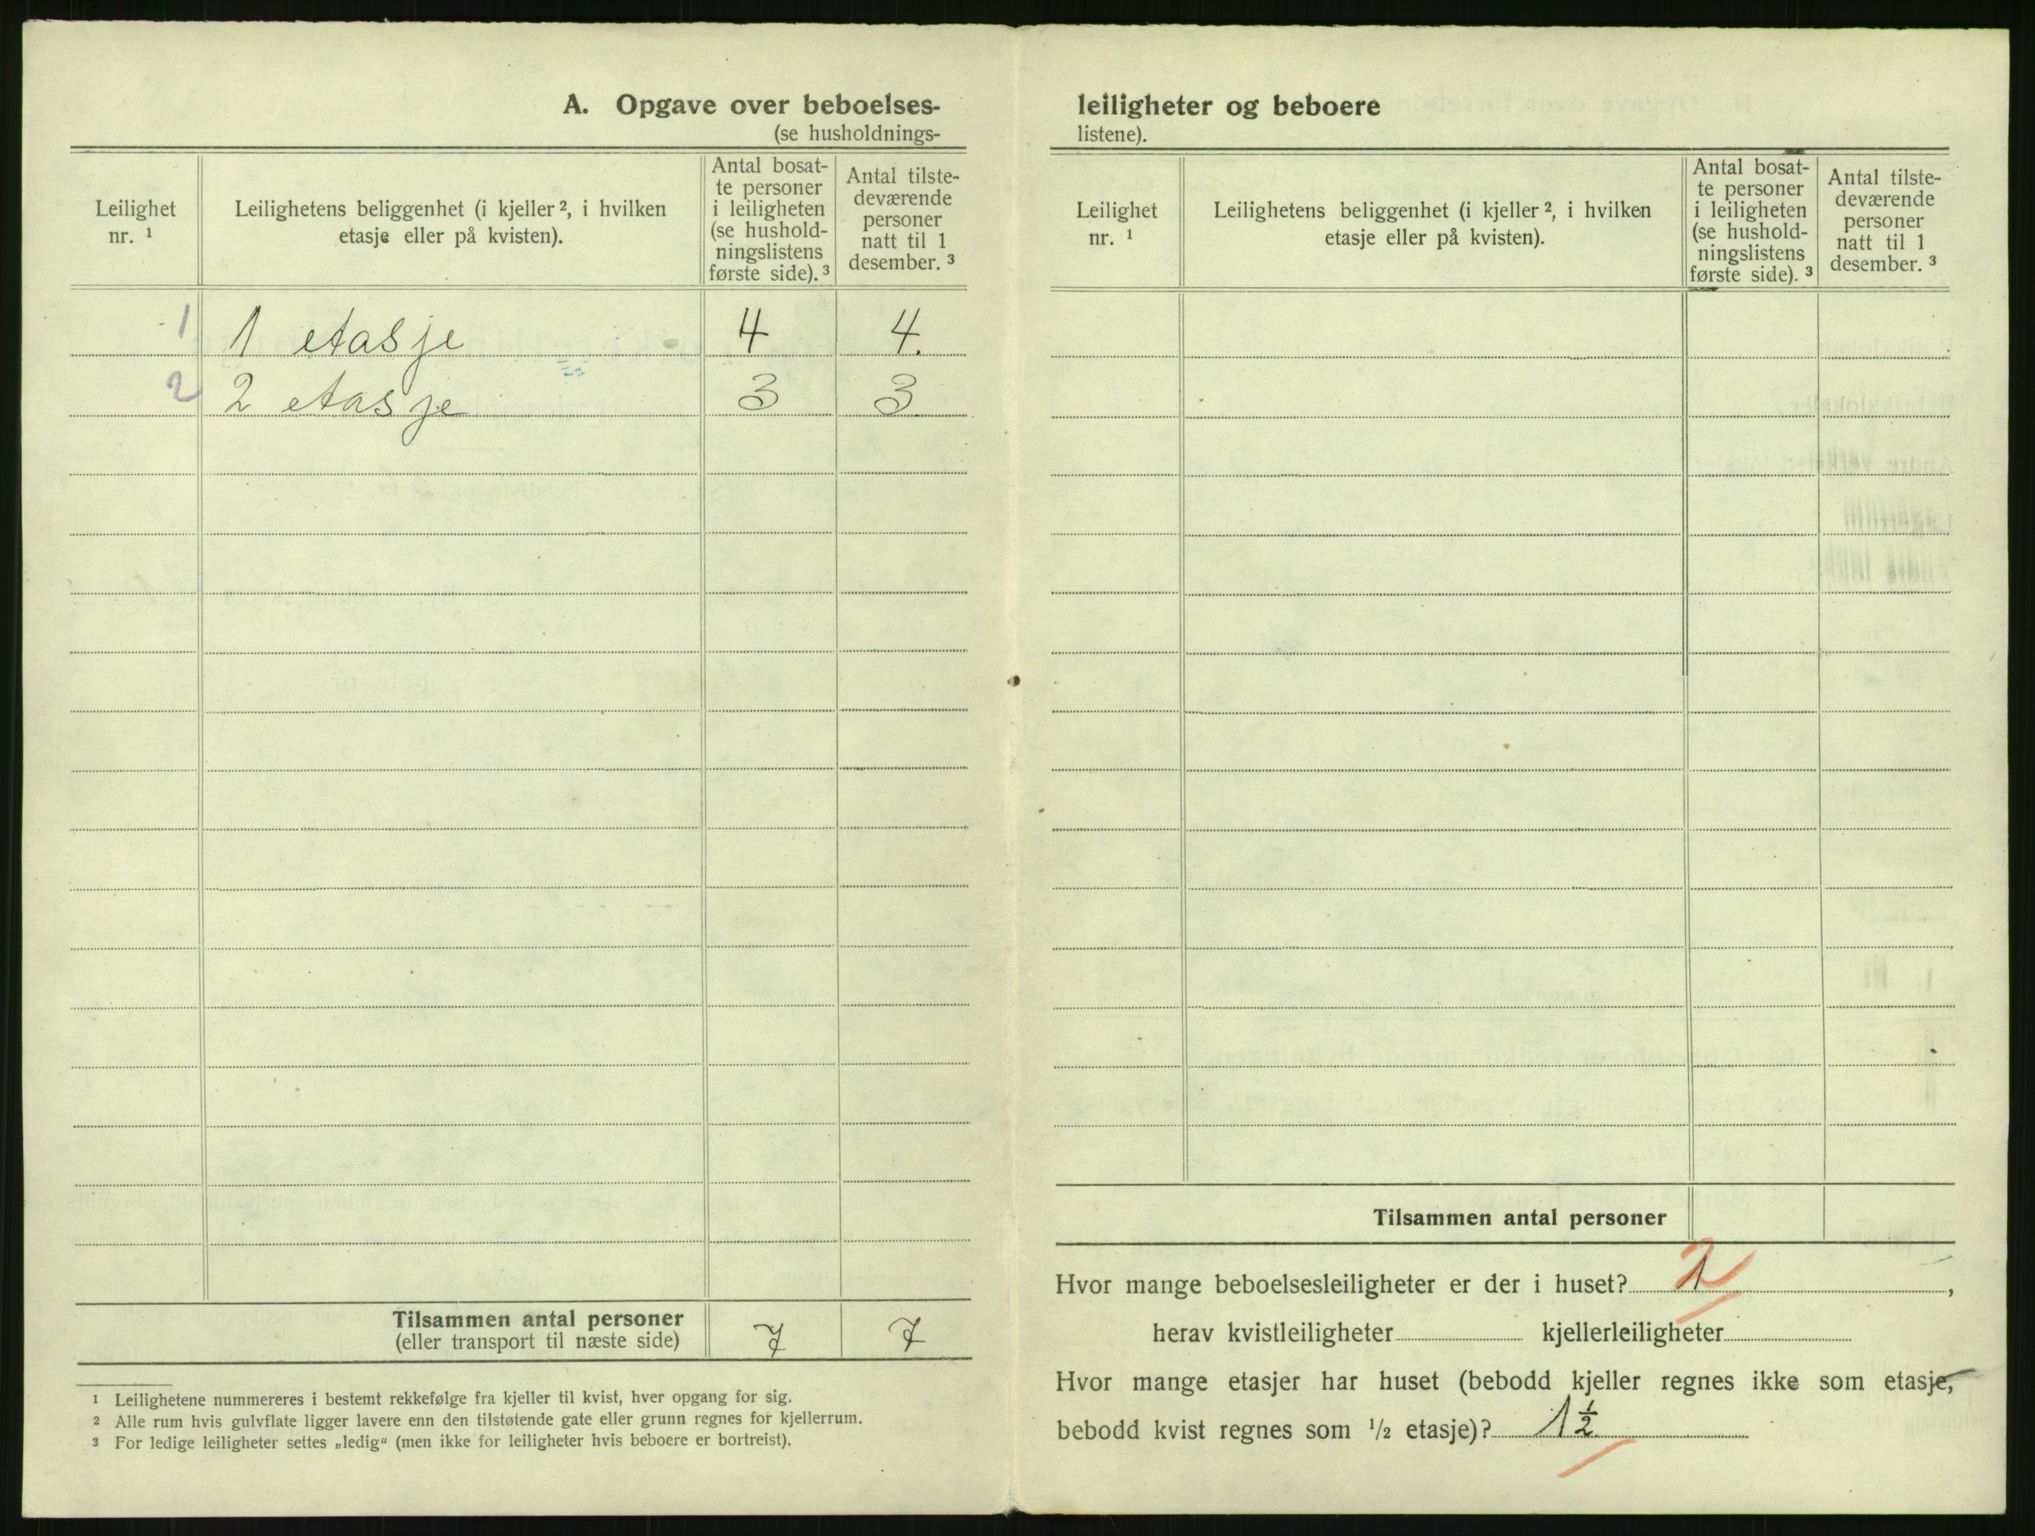 A. Opgave over beboelses-
(se husholdnings-
Leilighet nr. ¹
Leilighetens beliggenhet (i kjeller ², i hvilken etasje eller på kvisten).
Antal bosat-
te personer
i leiligheten
(se hushold-
ningslistens
første side). ³
Antal tilste-
deværende
personer
natt til 1
desember. ³
1 1 etasje 4 4.
2 2 etasje 3 3
Tilsammen antal personer 7 7
(eller transport til næste side)
¹ Leilighetene nummereres i bestemt rekkefølge fra kjeller til kvist, hver opgang for sig.
² Alle rum hvis gulvflate ligger lavere enn den tilstøtende gate eller grunn regnes for kjellerrum.
³ For ledige leiligheter settes „ledig“ (men ikke for leiligheter hvis beboere er bortreist).
leiligheter og beboere
listene).
Leilighet nr. ¹
Leilighetens beliggenhet (i kjeller ², i hvilken etasje eller på kvisten).
Antal bosat-
te personer
i leiligheten
(se hushold-
ningslistens
første side). ³
Antal tilste-
deværende
personer
natt til 1
desember. ³
Tilsammen antal personer
Hvor mange beboelsesleiligheter er der i huset? 1 2,
herav kvistleiligheter kjellerleiligheter
Hvor mange etasjer har huset (bebodd kjeller regnes ikke som etasje,
bebodd kvist regnes som ½ etasje)? 1 ½